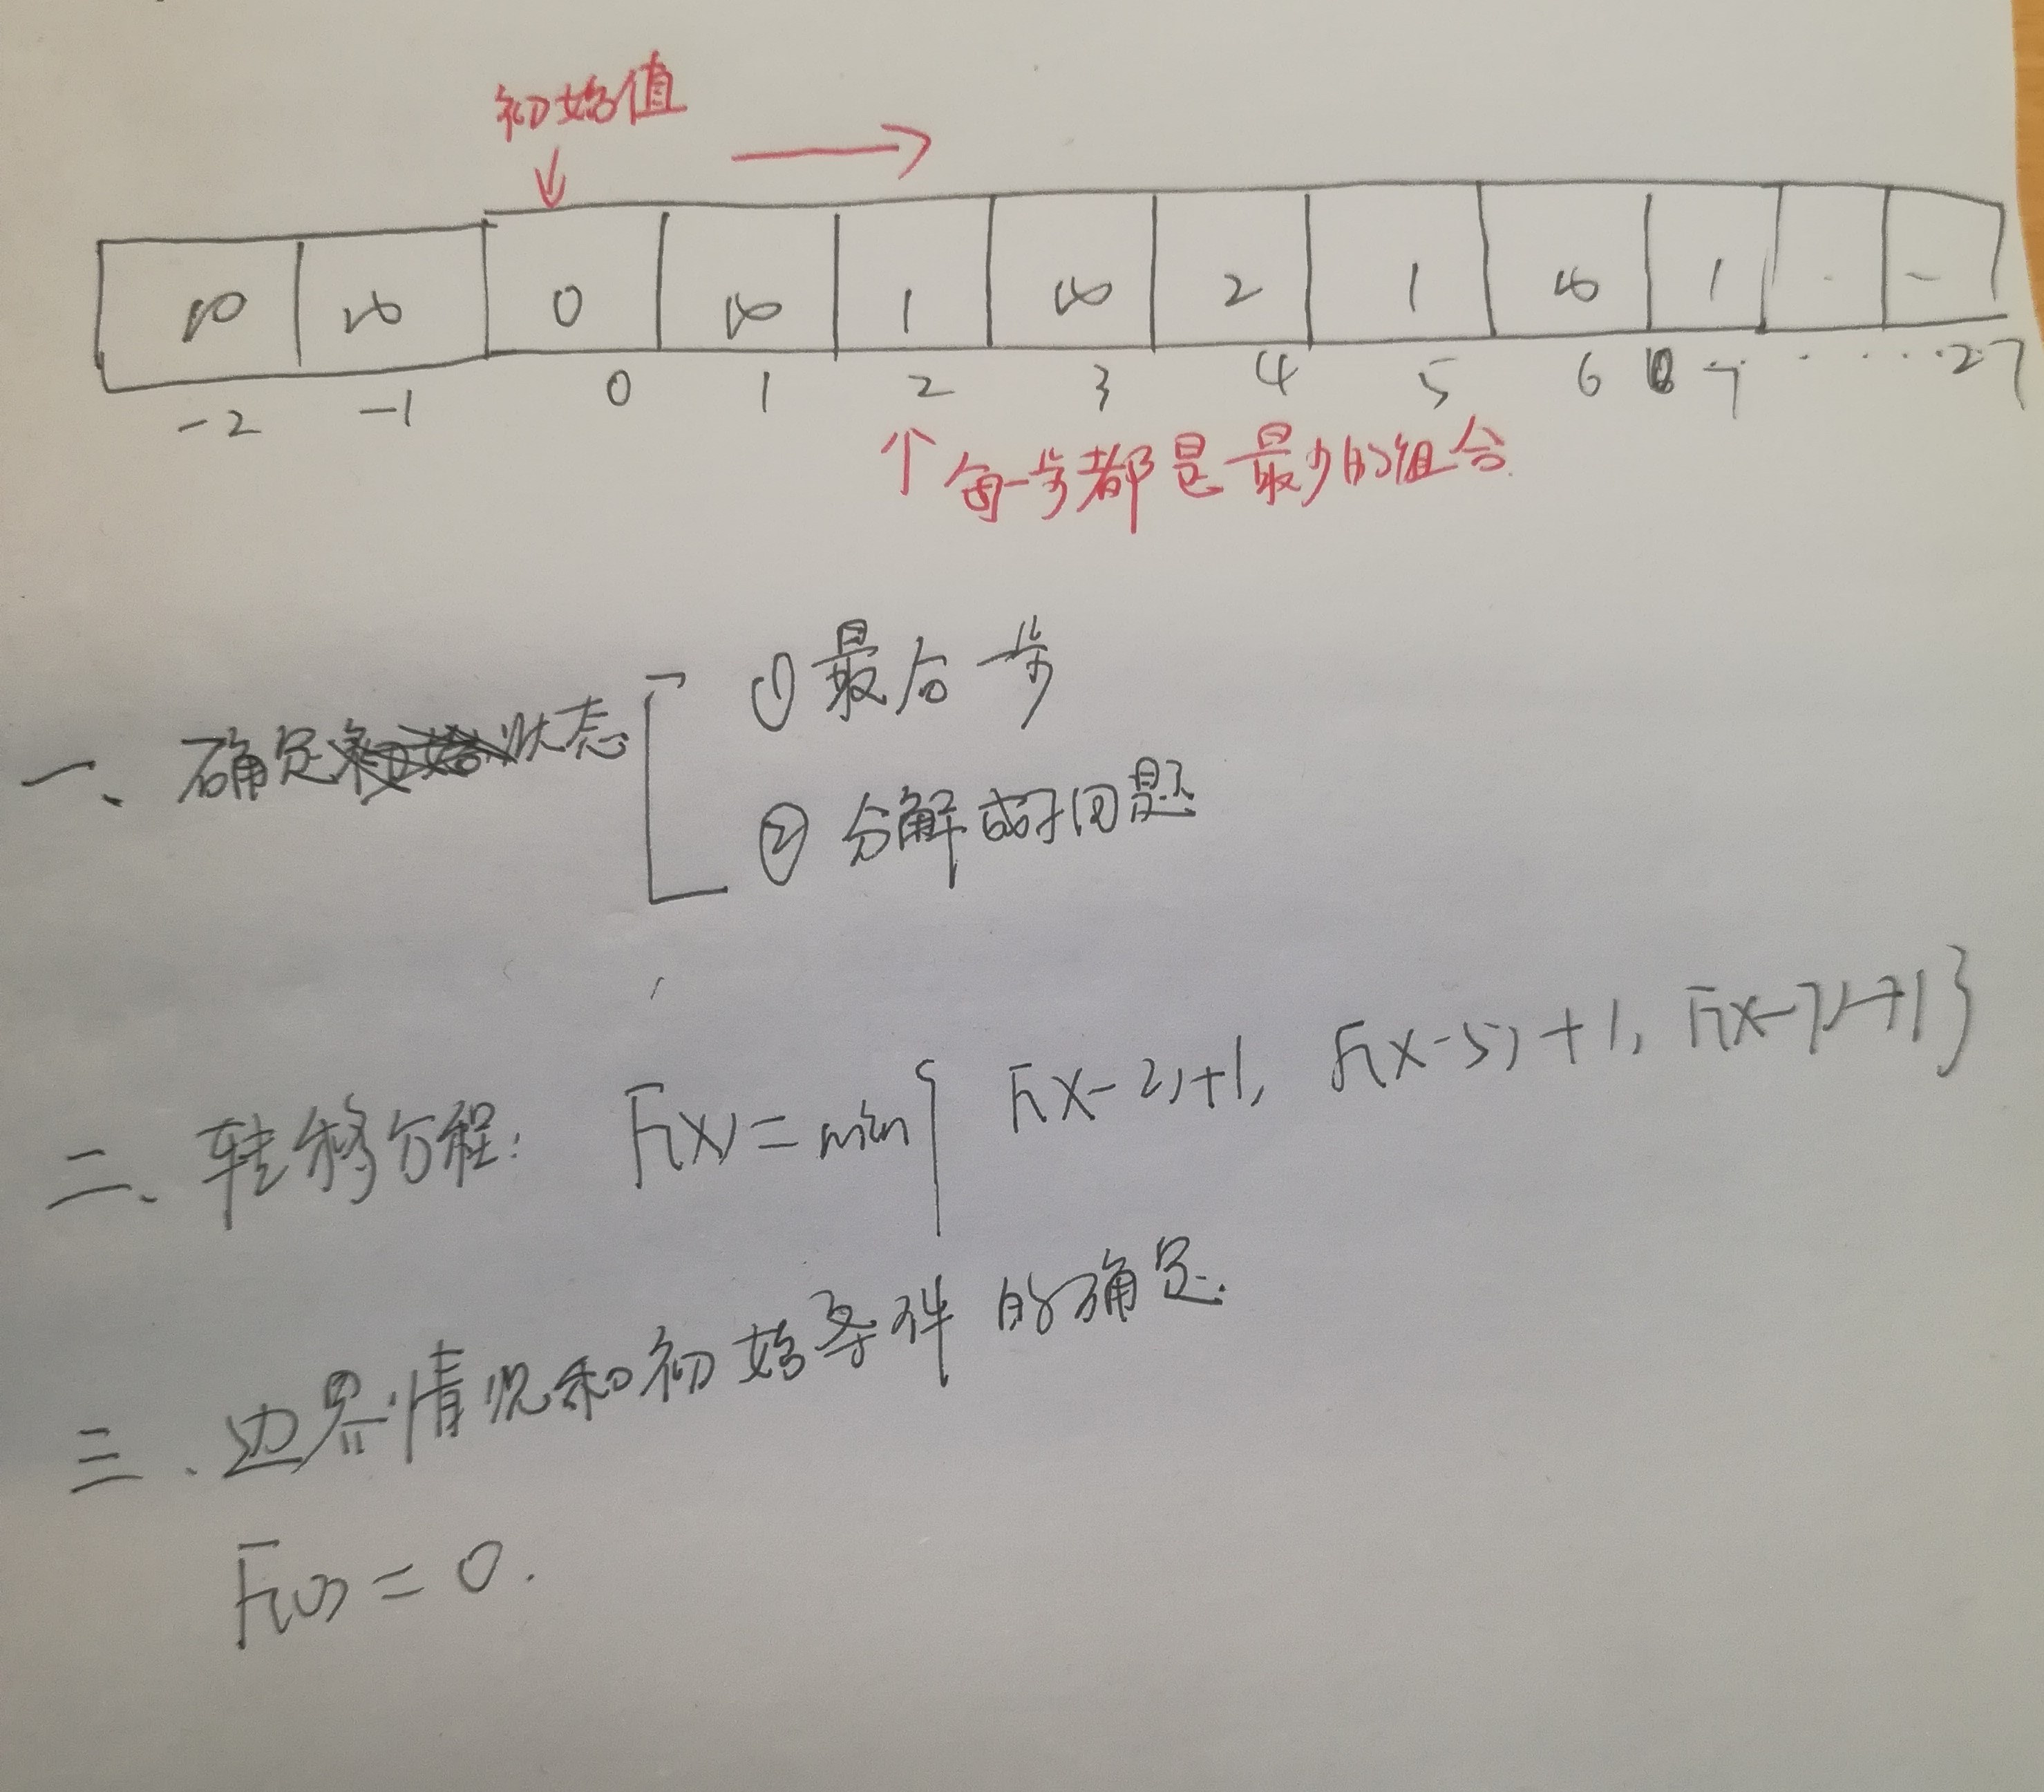 初始值
∞ ∞ 0 ∞ 1 ∞ 2 1 ∞ 1
-2 -1 0 1 2 3 4 5 6 7 ...... 27
每一步都是最少的组合.
① 最后一步
一、确定状态
② 分解成子问题
二、转移方程: F(x)=min{ F(x-2)+1, F(x-5)+1, F(x-7)+1}
三.边界情况和初始条件的确定.
F(0)=0.